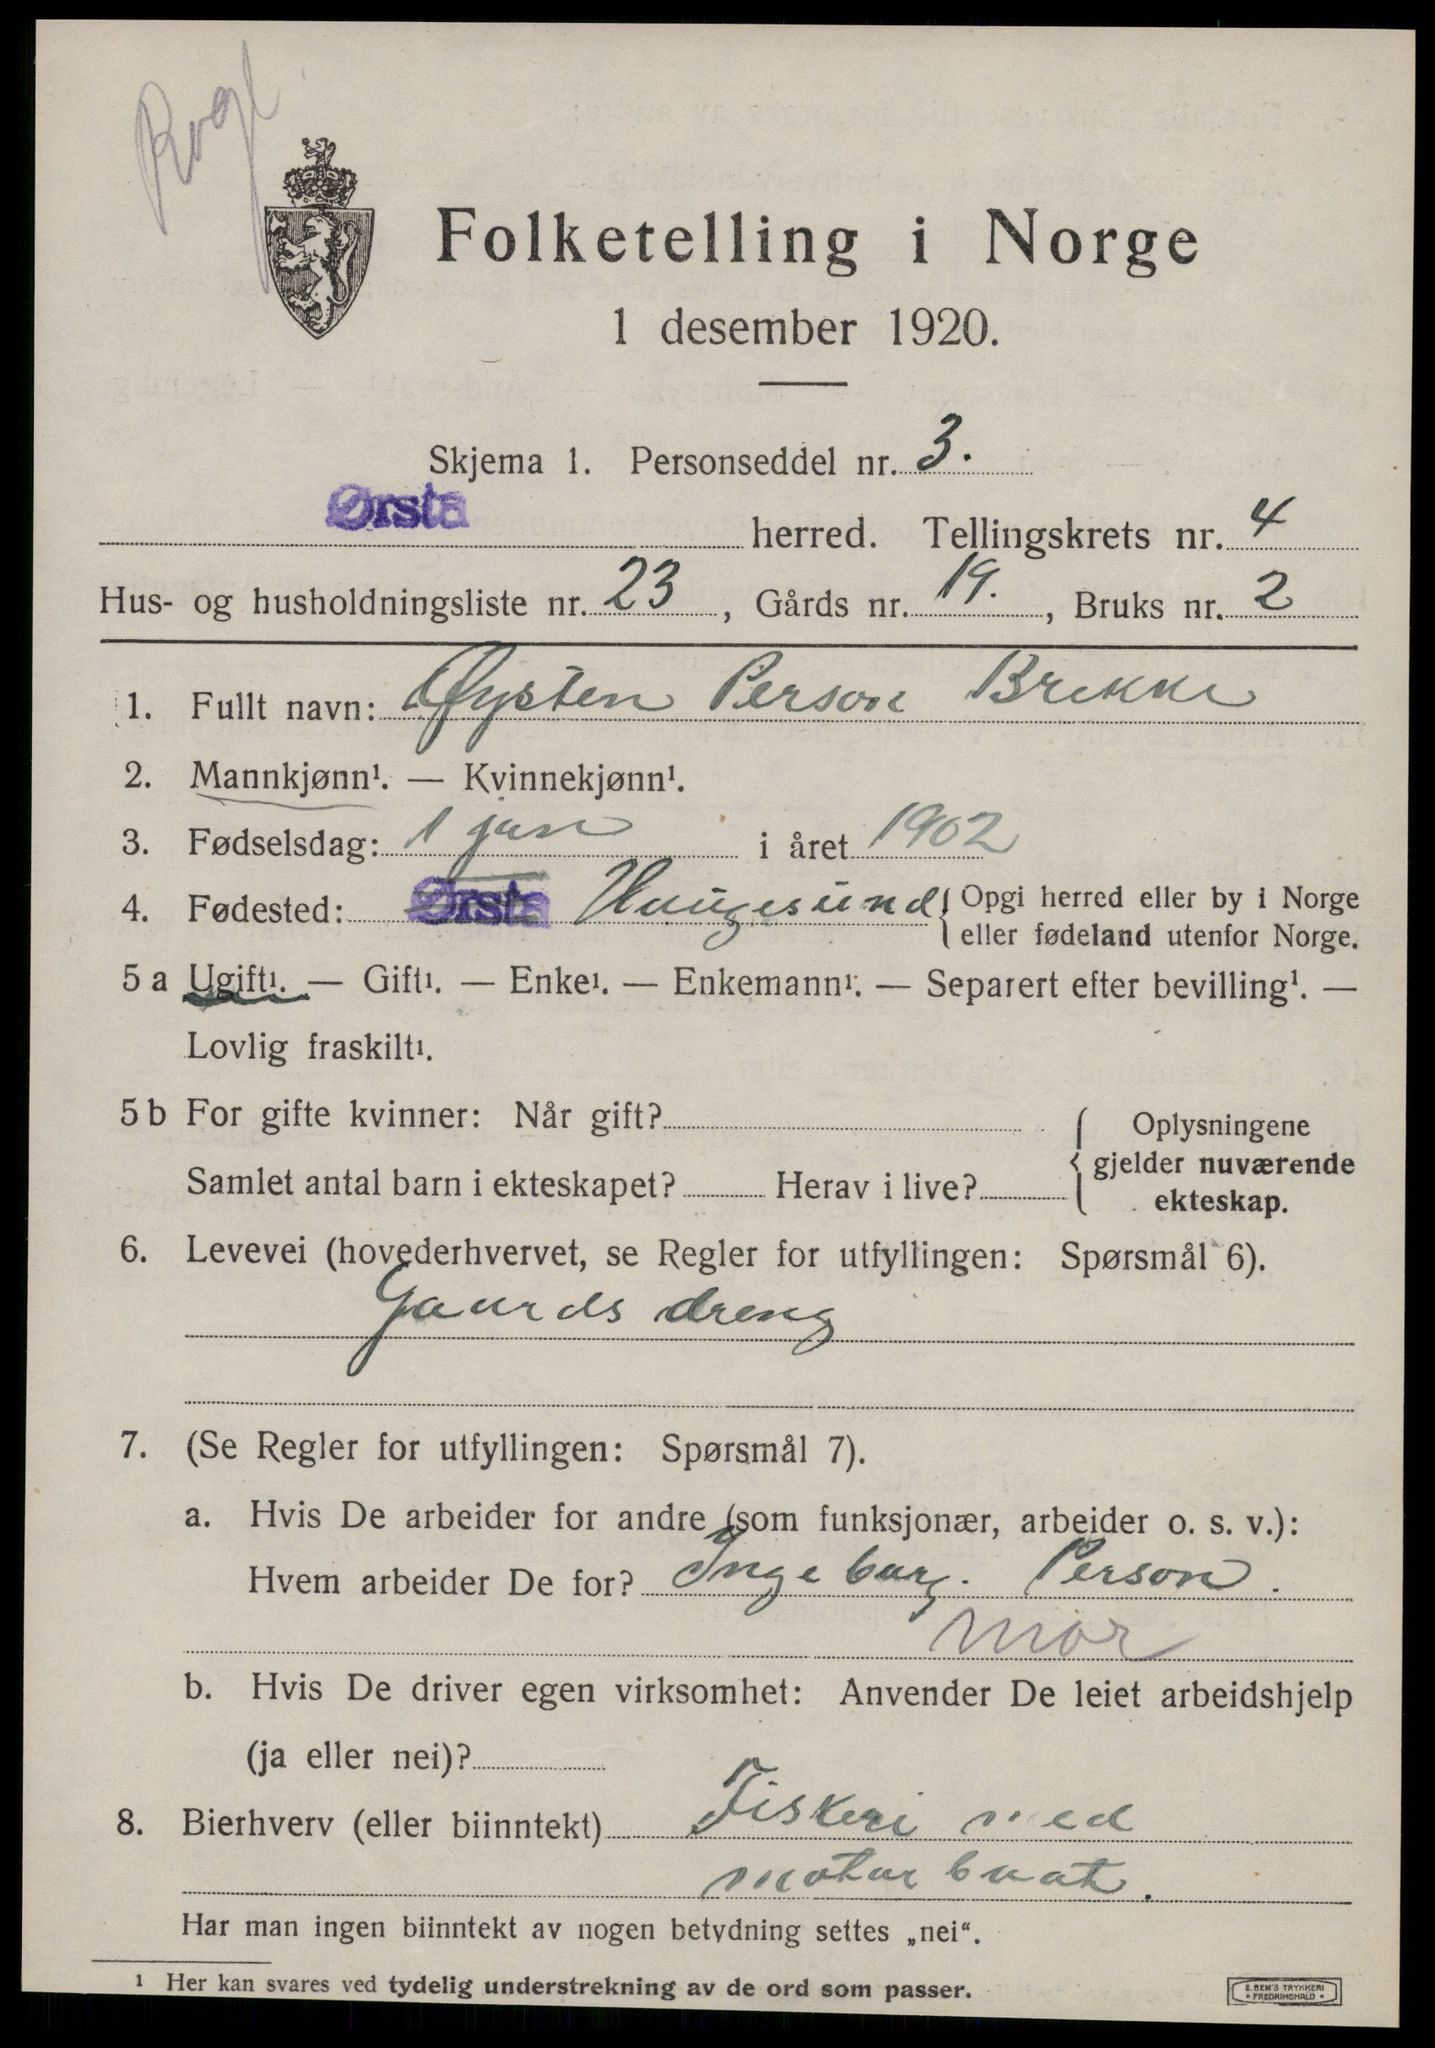 Rogl
Folketelling i Norge
1 desember 1920.
Skjema 1. Personseddel nr. 3.
Ørsta herred. Tellingskrets nr. 4
Hus- og husholdningsliste nr. 23, Gårds nr. 19., Bruks nr. 2
1. Fullt navn: Øysten Person Brekke
2. Mannkjønn¹. — Kvinnekjønn¹.
3. Fødselsdag: 1 jan i året 1902
4. Fødested: Ørsta Haugesund { Opgi herred eller by i Norge
eller fødeland utenfor Norge.
5 a Ugift¹. — Gift¹. — Enke¹. — Enkemann¹. — Separert efter bevilling¹. —
Lovlig fraskilt¹.
5 b For gifte kvinner: Når gift? { Oplysningene
gjelder nuværende
ekteskap.
Samlet antal barn i ekteskapet? Herav i live?
6. Levevei (hovederhvervet, se Regler for utfyllingen: Spørsmål 6).
Gaards dreng
7. (Se Regler for utfyllingen: Spørsmål 7).
a. Hvis De arbeider for andre (som funksjonær, arbeider o. s. v.):
Hvem arbeider De for? Ingeborg. Person.
mor
b. Hvis De driver egen virksomhet: Anvender De leiet arbeidshjelp
(ja eller nei)?
8. Bierhverv (eller biinntekt) Fiskeri med
motor baat.
Har man ingen biinntekt av nogen betydning settes „nei“.
¹ Her kan svares ved tydelig understrekning av de ord som passer.
E. SEM'S TRYKKERI
FREDRIKSHALD